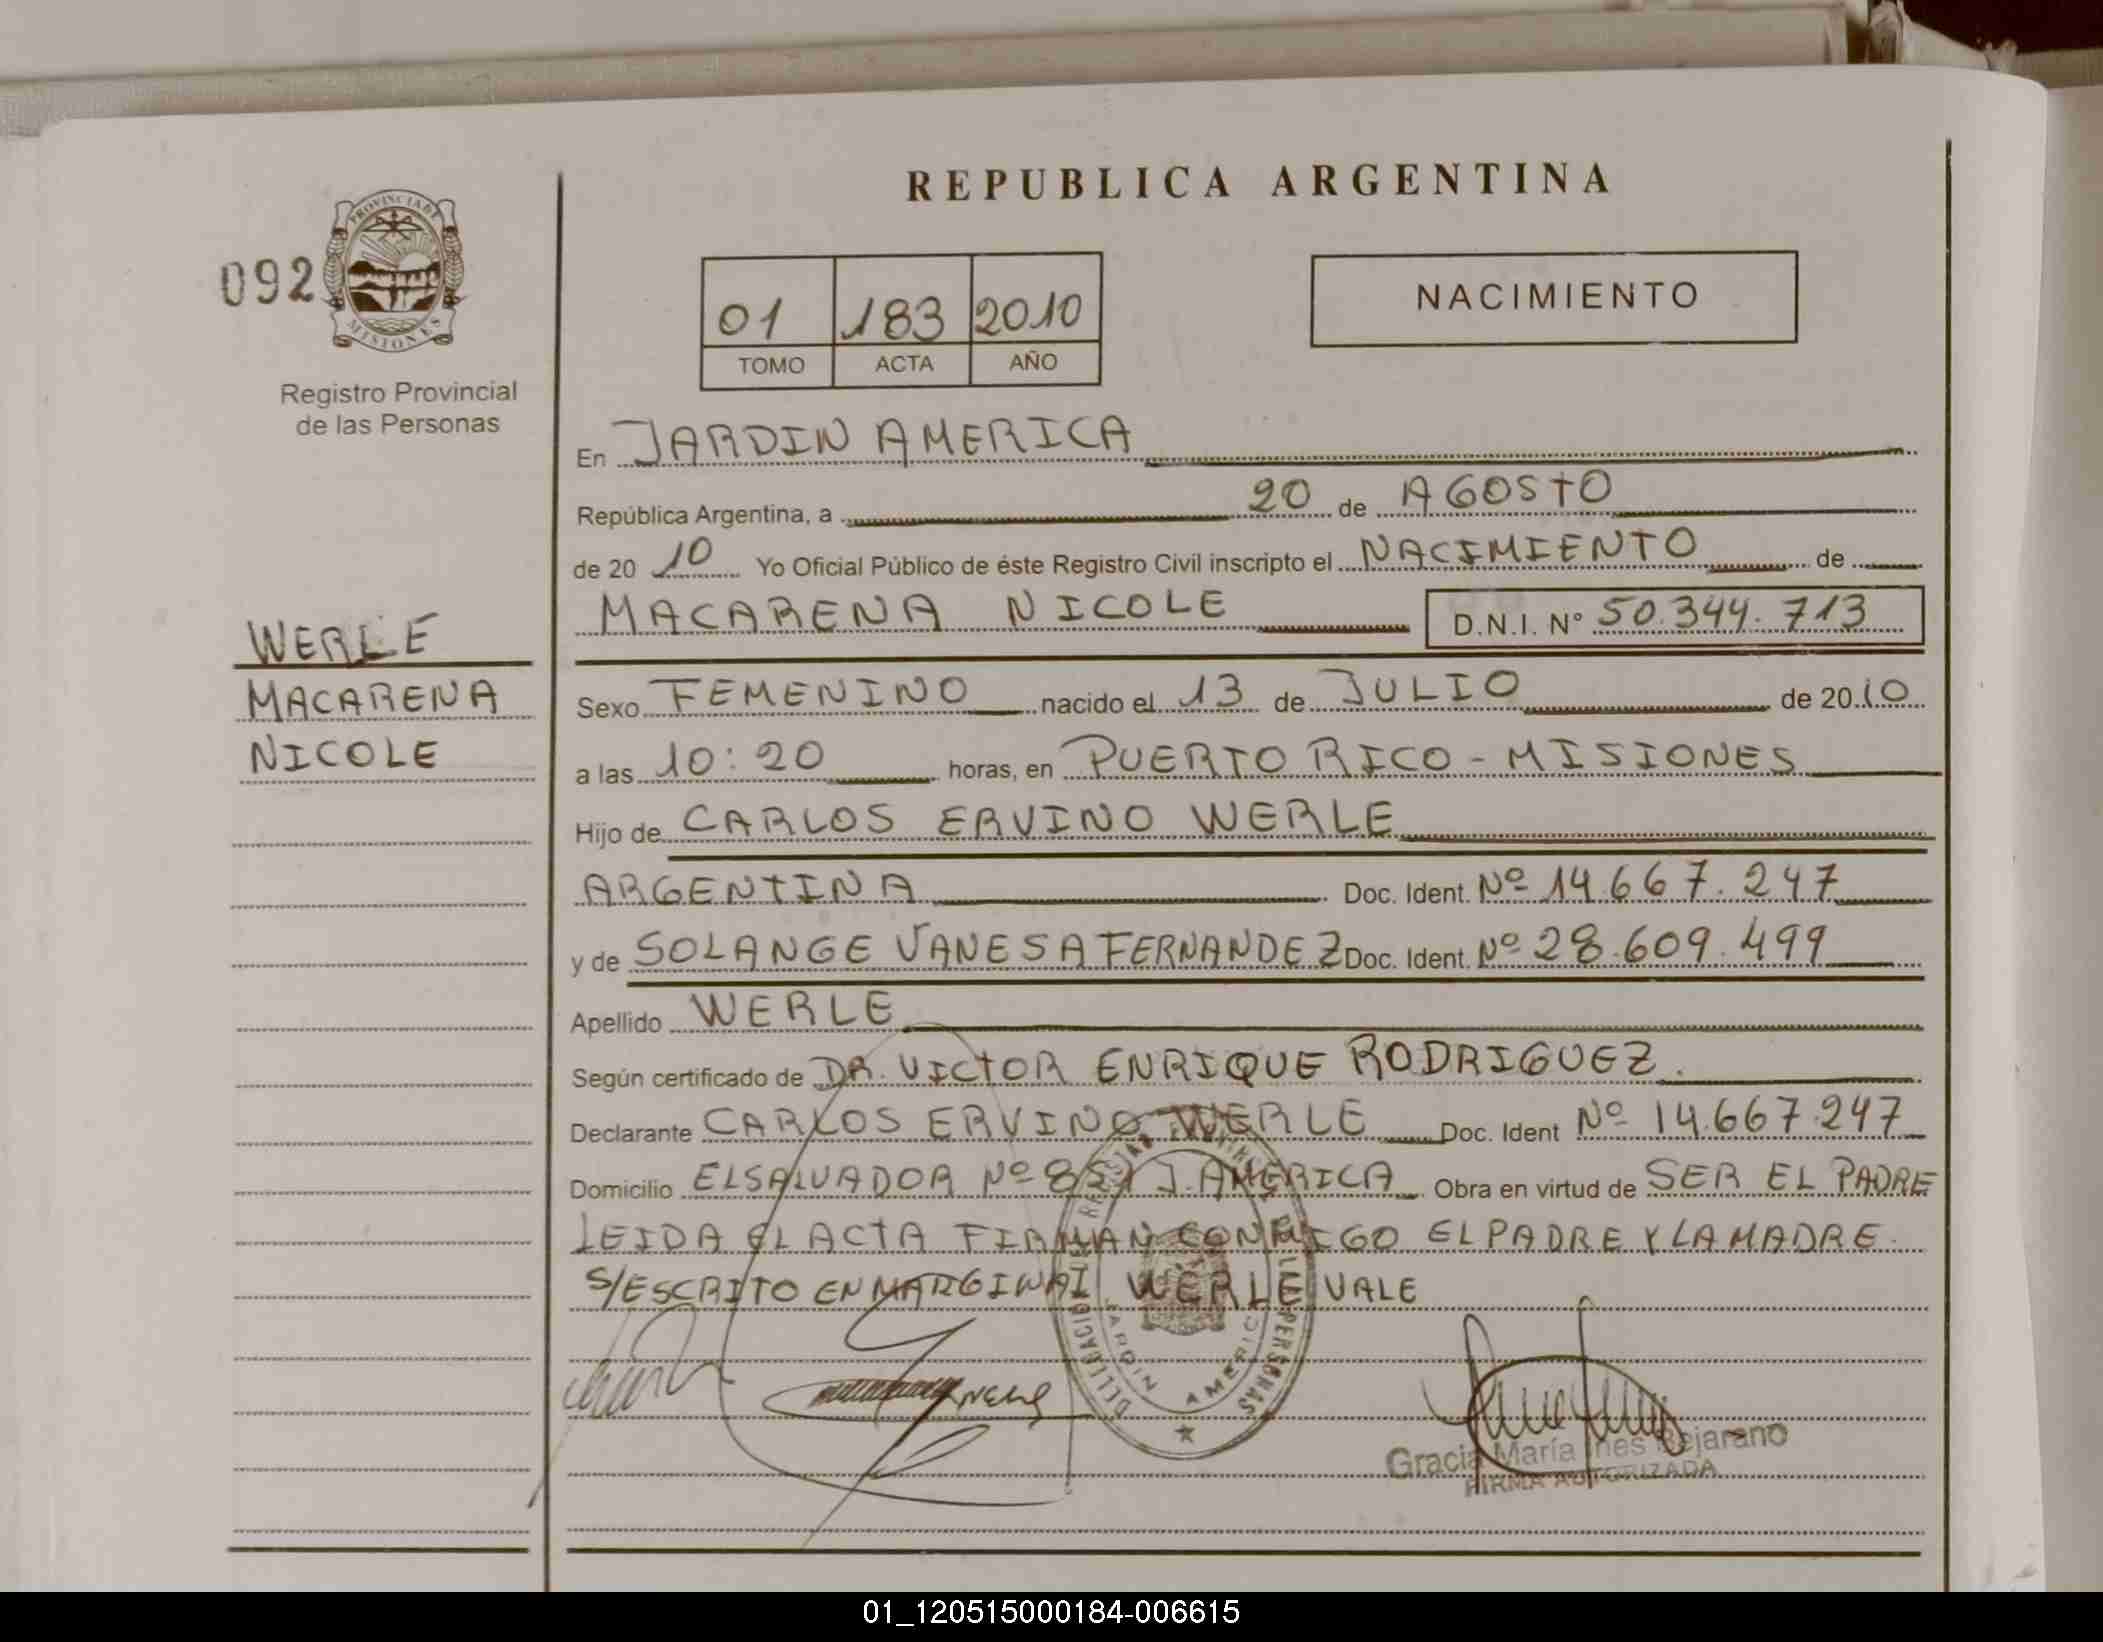 REPUBLICA ARGENTINA
092
PROVINCIA DE
MISIONES
Registro Provincial
de las Personas
01 183 2010
TOMO ACTA AÑO
NACIMIENTO
En JARDIN AMERICA
República Argentina, a 20 de AGOSTO
de 20 10 Yo Oficial Público de éste Registro Civil inscripto el NACIMIENTO de
MACARENA NICOLE D.N.I. Nº 50.344.713
WERLE
MACARENA
NICOLE
Sexo FEMENINO nacido el 13 de JULIO de 20 10
a las 10:20 horas, en PUERTO RICO - MISIONES
Hijo de CARLOS ERVINO WERLE
ARGENTINA Doc. Ident. Nº 14.667.247
y de SOLANGE VANESA FERNANDEZ Doc. Ident. Nº 28.609.499
Apellido WERLE
Según certificado de DR. VICTOR ENRIQUE RODRIGUEZ.
Declarante CARLOS ERVINO WERLE Doc. Ident Nº 14.667.247
Domicilio EL SALVADOR Nº J. AMERICA Obra en virtud de SER EL PADRE
LEIDA EL ACTA FIRMAN CONMIGO EL PADRE Y LA MADRE.
S/ESCRITO EN MARGINAL WERLE VALE
JARDIN AMERICA
Gracia María Ines Bejarano
FIRMA AUTORIZADA
01_120515000184-006615